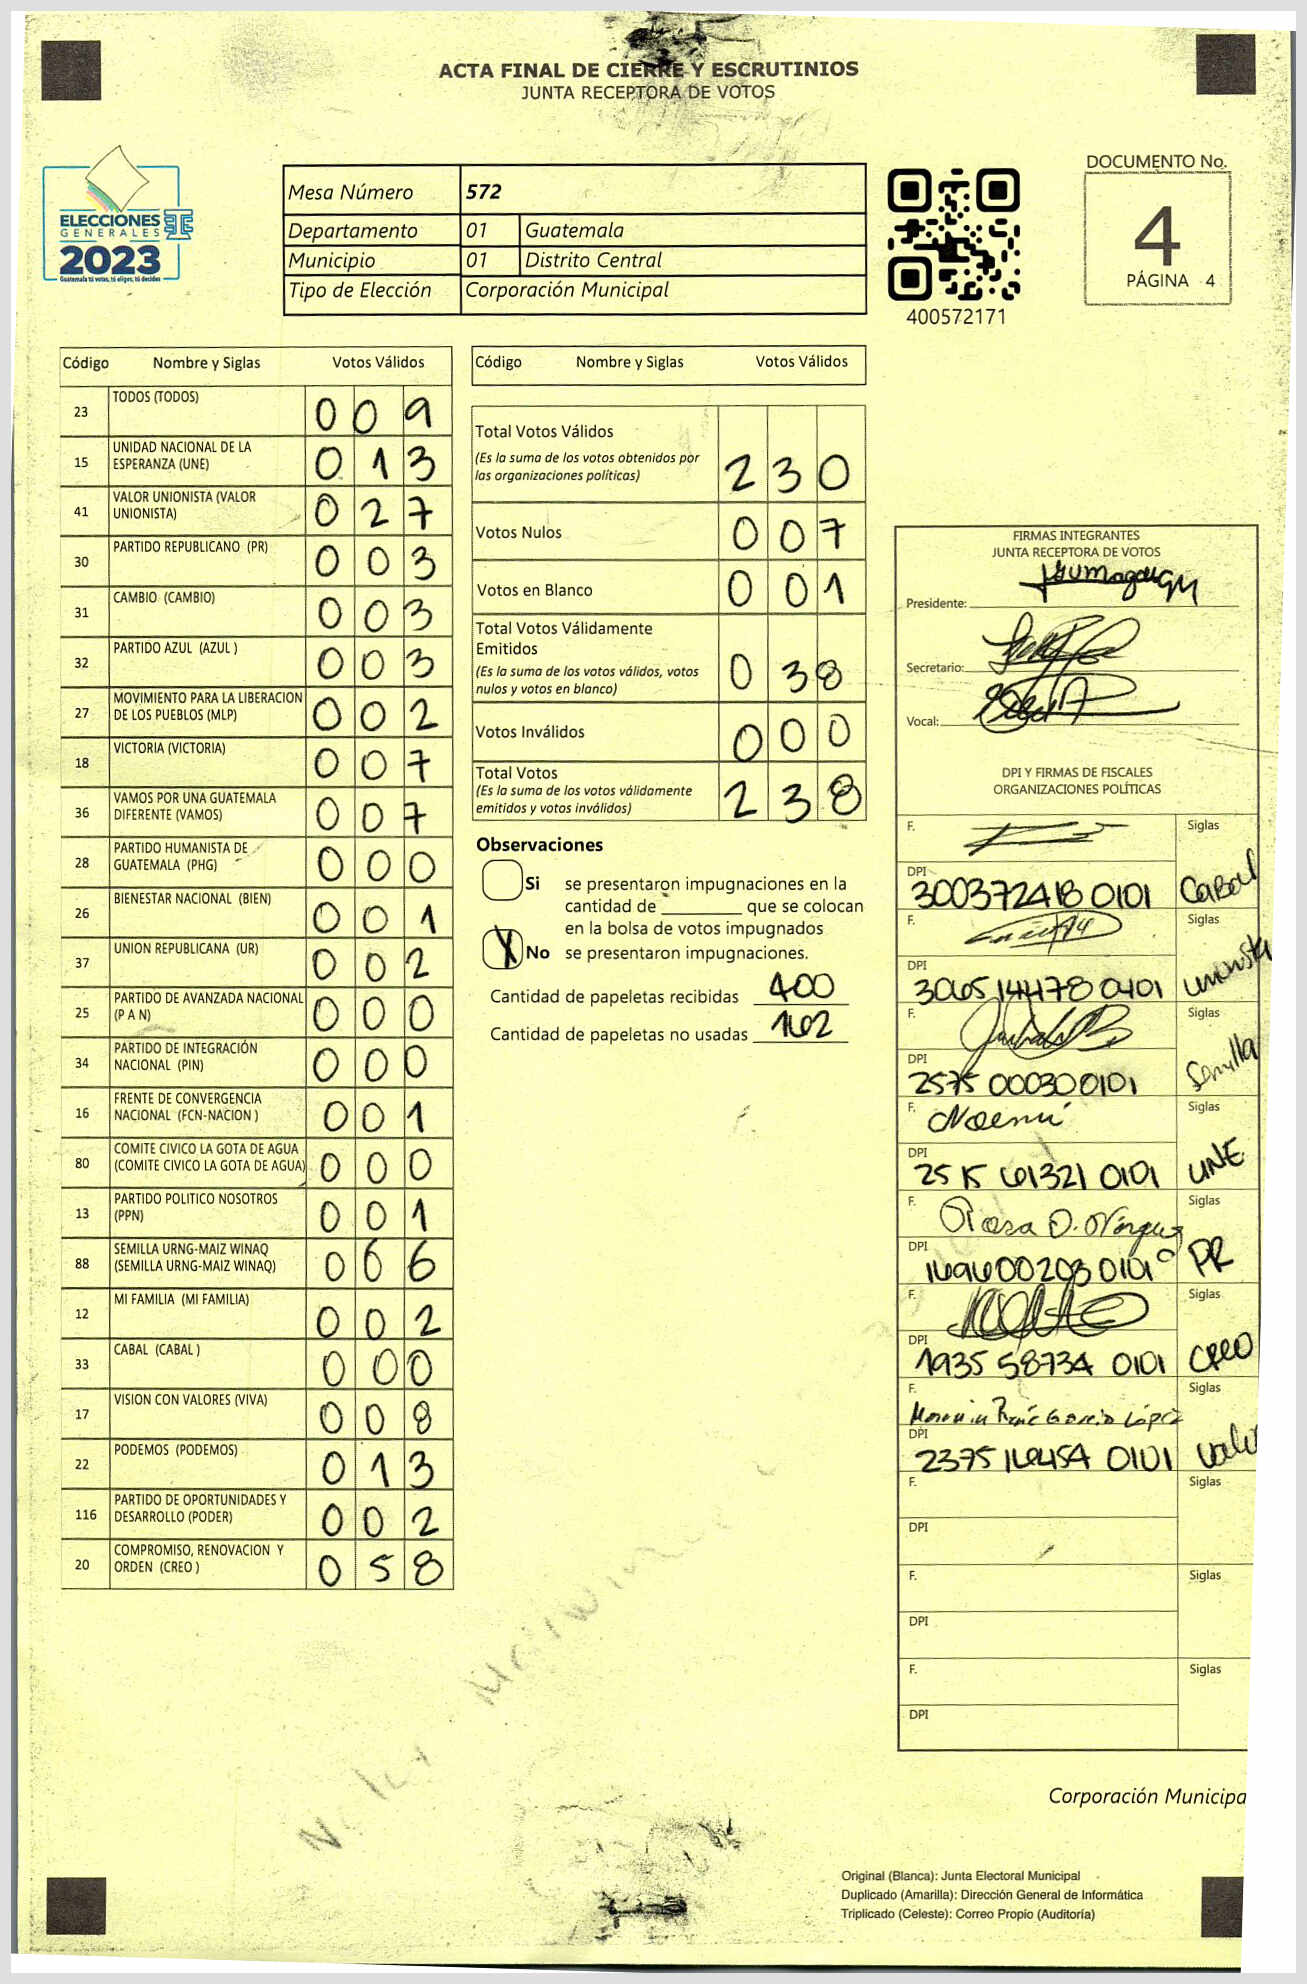 ACTA FINAL DE CIERRE Y ESCRUTINIOS
JUNTA RECEPTORA DE VOTOS
ELECCIONES
GENERALES
2023
Guatemala tú votas, tú eliges, tú decides
Mesa Número 572
Departamento 01 Guatemala
Municipio 01 Distrito Central
Tipo de Elección Corporación Municipal
400572171
DOCUMENTO No.
4
PÁGINA 4
Código Nombre y Siglas Votos Válidos
23 TODOS (TODOS) 0 0 9
15 UNIDAD NACIONAL DE LA ESPERANZA (UNE) 0 1 3
41 VALOR UNIONISTA (VALOR UNIONISTA) 0 2 7
30 PARTIDO REPUBLICANO (PR) 0 0 3
31 CAMBIO (CAMBIO) 0 0 3
32 PARTIDO AZUL (AZUL ) 0 0 3
27 MOVIMIENTO PARA LA LIBERACION DE LOS PUEBLOS (MLP) 0 0 2
18 VICTORIA (VICTORIA) 0 0 7
36 VAMOS POR UNA GUATEMALA DIFERENTE (VAMOS) 0 0 7
28 PARTIDO HUMANISTA DE GUATEMALA (PHG) 0 0 0
26 BIENESTAR NACIONAL (BIEN) 0 0 1
37 UNION REPUBLICANA (UR) 0 0 2
25 PARTIDO DE AVANZADA NACIONAL (P A N) 0 0 0
34 PARTIDO DE INTEGRACIÓN NACIONAL (PIN) 0 0 0
16 FRENTE DE CONVERGENCIA NACIONAL (FCN-NACION ) 0 0 1
80 COMITE CIVICO LA GOTA DE AGUA (COMITE CIVICO LA GOTA DE AGUA) 0 0 0
13 PARTIDO POLITICO NOSOTROS (PPN) 0 0 1
88 SEMILLA URNG-MAIZ WINAQ (SEMILLA URNG-MAIZ WINAQ) 0 6 6
12 MI FAMILIA (MI FAMILIA) 0 0 2
33 CABAL (CABAL ) 0 0 0
17 VISION CON VALORES (VIVA) 0 0 8
22 PODEMOS (PODEMOS) 0 1 3
116 PARTIDO DE OPORTUNIDADES Y DESARROLLO (PODER) 0 0 2
20 COMPROMISO, RENOVACION Y ORDEN (CREO ) 0 5 8
Código Nombre y Siglas Votos Válidos
Total Votos Válidos
(Es la suma de los votos obtenidos por
las organizaciones políticas) 2 3 0
Votos Nulos 0 0 7
Votos en Blanco 0 0 1
Total Votos Válidamente
Emitidos
(Es la suma de los votos válidos, votos
nulos y votos en blanco) 0 3 8
Votos Inválidos 0 0 0
Total Votos
(Es la suma de los votos válidamente
emitidos y votos inválidos) 2 3 8
Observaciones
Si se presentaron impugnaciones en la
cantidad de ________ que se colocan
en la bolsa de votos impugnados
X No se presentaron impugnaciones.
Cantidad de papeletas recibidas 400
Cantidad de papeletas no usadas 162
FIRMAS INTEGRANTES
JUNTA RECEPTORA DE VOTOS
Presidente:
Secretario:
Vocal:
DPI Y FIRMAS DE FISCALES
ORGANIZACIONES POLÍTICAS
F. Siglas
DPI 300372418 0101 CABAL
F. Siglas
DPI 306514478 0401 unionista
F. Siglas
DPI 2575 00030 0101 Semilla
F. Noemí Siglas
DPI 2515 61321 0101 UNE
F. Rosa O. Siglas
DPI 169600203 0101 PR
F. Siglas
DPI 1935 58734 0101 CREO
F. García López Siglas
DPI 2375 16454 0101 Valor
F. Siglas
DPI
F. Siglas
DPI
F. Siglas
DPI
Corporación Municipa
Original (Blanca): Junta Electoral Municipal
Duplicado (Amarilla): Dirección General de Informática
Triplicado (Celeste): Correo Propio (Auditoría)